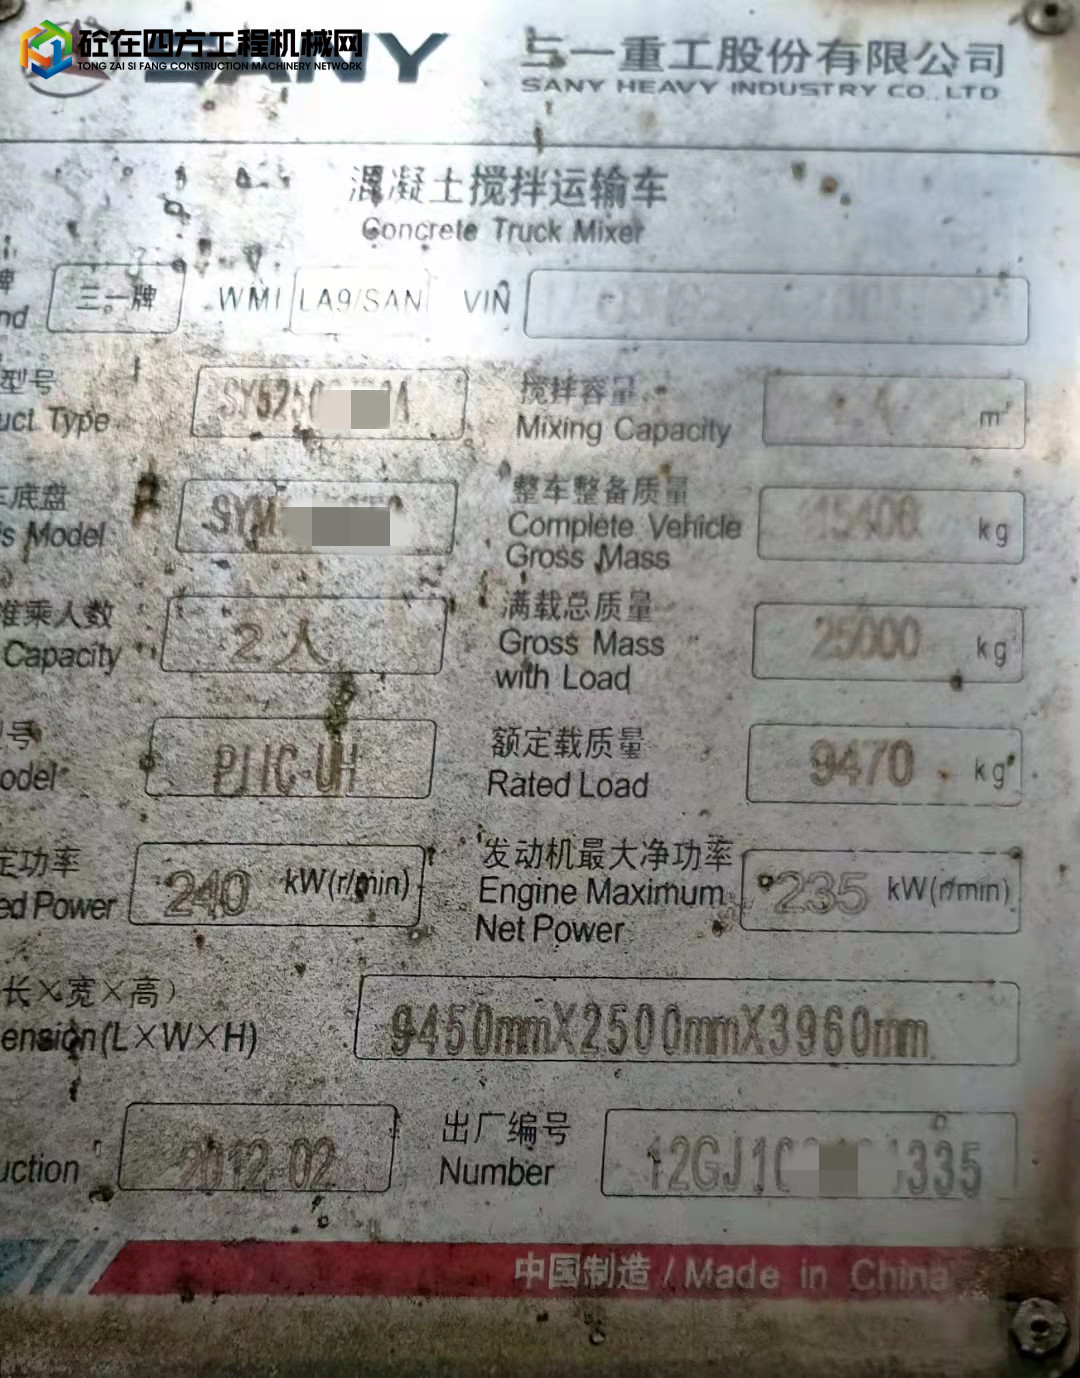 砼在四方工程机械网
TONG ZAI SI FANG CONSTRUCTION MACHINERY NETWORK
SANY
三一重工股份有限公司
SANY HEAVY INDUSTRY CO.,LTD
混凝土搅拌运输车
Concrete Truck Mixer
牌 三一牌 WMI LA9/SAN VIN
nd
型号
uct Type
搅拌容量
Mixing Capacity m³
车底盘
is Model
整车整备质量
Complete Vehicle Gross Mass 15400 kg
准乘人数
Capacity 2人
满载总质量
Gross Mass with Load 25000 kg
型号
odel
额定载质量
Rated Load 9470 kg
定功率
ed Power 240 kW(r/min)
发动机最大净功率
Engine Maximum Net Power 235 kW(r/min)
长×宽×高）
ension(L×W×H) 9450mmX2500mmX3960mm
uction 2012-02
出厂编号
Number 335
中国制造 / Made in China